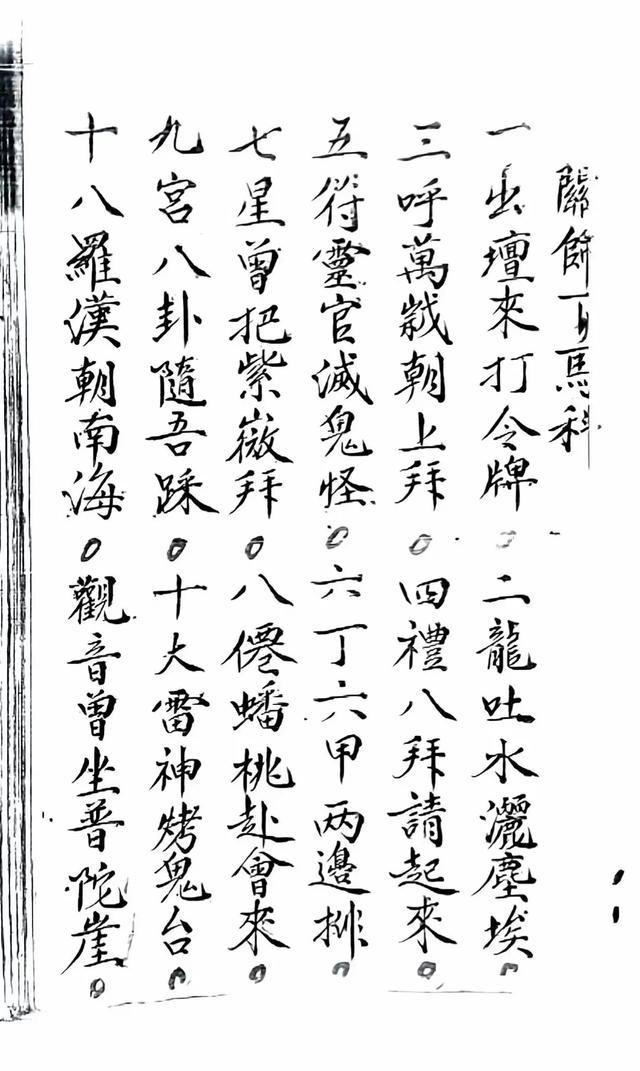 關餉下馬科
一出壇來打令牌。二龍吐水灑塵埃
三呼萬歲朝上拜。四禮八拜請起來。
五符靈官滅鬼怪。六丁六甲两邊排
七星曾把紫微拜。八僊蟠桃赴會來。
九宮八卦隨吾踩。十大雷神烤鬼台
十八羅漢朝南海。觀音曾坐普陀崖。